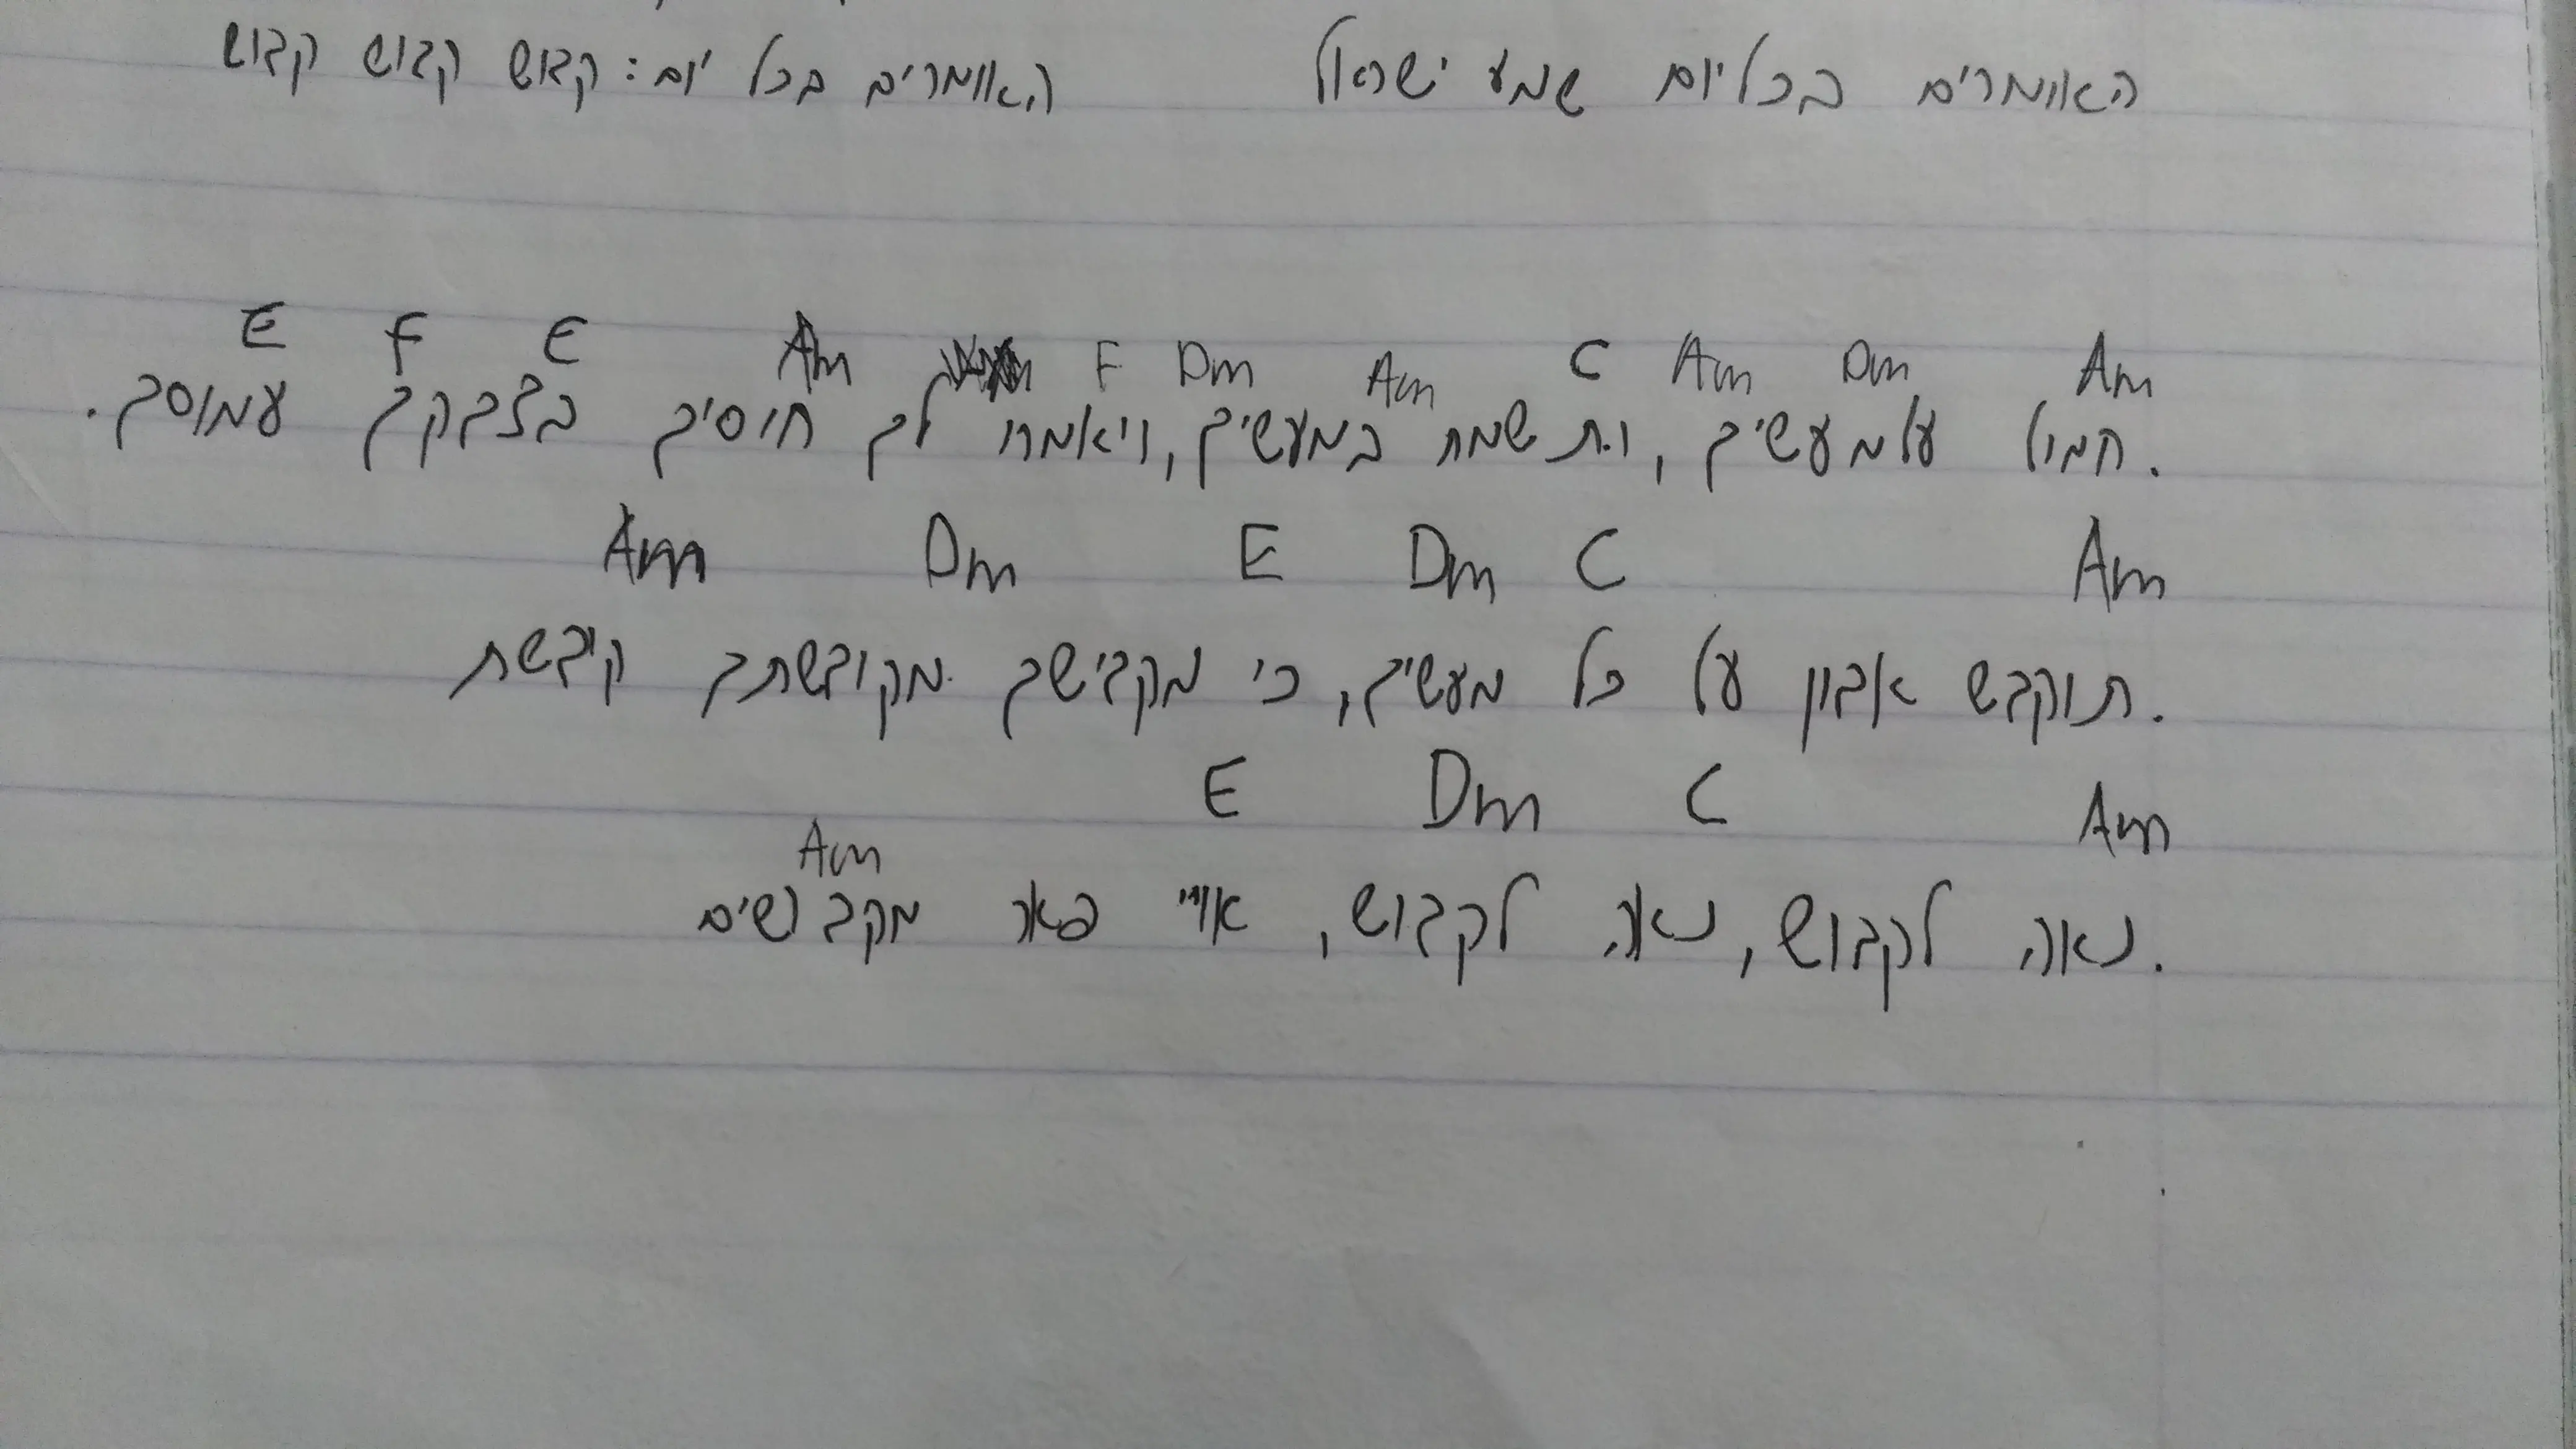 האומרים בכל יום שמע ישראל האומרים בכל יום: קדוש קדוש קדוש
Am Dm Am C Am Dm F Am E F E
חמול על מעשיך, ותשמח במעשיך, ויאמרו לך חוסיך בצדקך עמוסך.
Am C Dm E Dm Am
תוקדש אדון על כל מעשיך, כי מקדישך מקודשתך קידשת
Am C Dm E Am
נאה לקדוש, נאה לקדוש, אויי פאר מקדושים